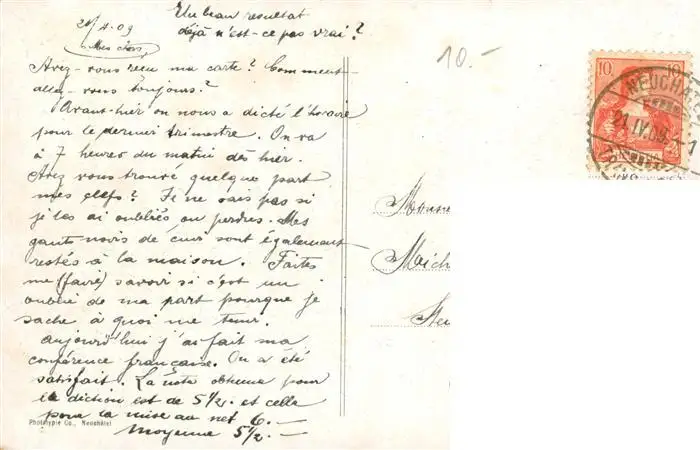 Un beau resultat
déjà n'est-ce pas vrai?
21/4.09
Mes chers,
Avez-vous reçu ma carte? Comment
allez-vous toujours?
Avant-hier on nous a dicté l'horaire
pour le dernier trimestre. On va
à 7 heures du matin dès hier.
Avez vous trouvé quelque part
mes clefs? Je ne sais pas si
je les ai oubliés ou perdus. Mes
gants noirs de cuir sont également
restés à la maison. Faites
me (faire) savoir si c'est un
oublié de ma part pourque je
sache à quoi me tenir.
Aujourd'hui j'ai fait ma
conférence française. On a été
satisfait. La note obtenue pour
la diction est de 5 1/2. et celle
pour la mise au net 6.—
Moyenne 5 1/2.—
Phototypie Co., Neuchâtel
10.-
10 10
NEUCHÂT
21.IV.09.-1
HELVETIA